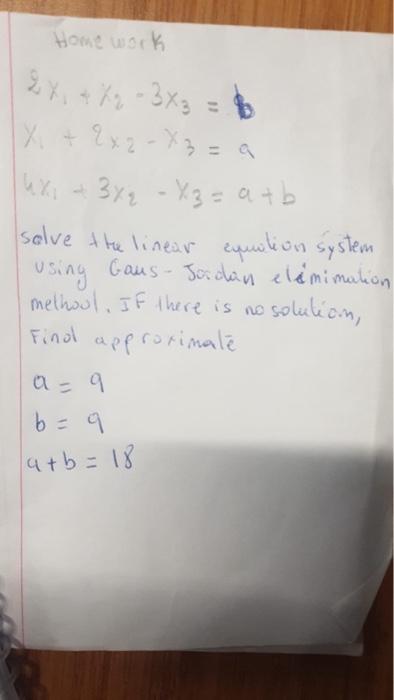 Home work
2x₁ + x₂ - 3x₃ = b
x₁ + 2x₂ - x₃ = a
4x₁ + 3x₂ - x₃ = a+b
solve the linear equation system
using Gaus - Jordan elimimation
methool. IF there is no solution,
Find approximate
a = 9
b = 9
a+b = 18